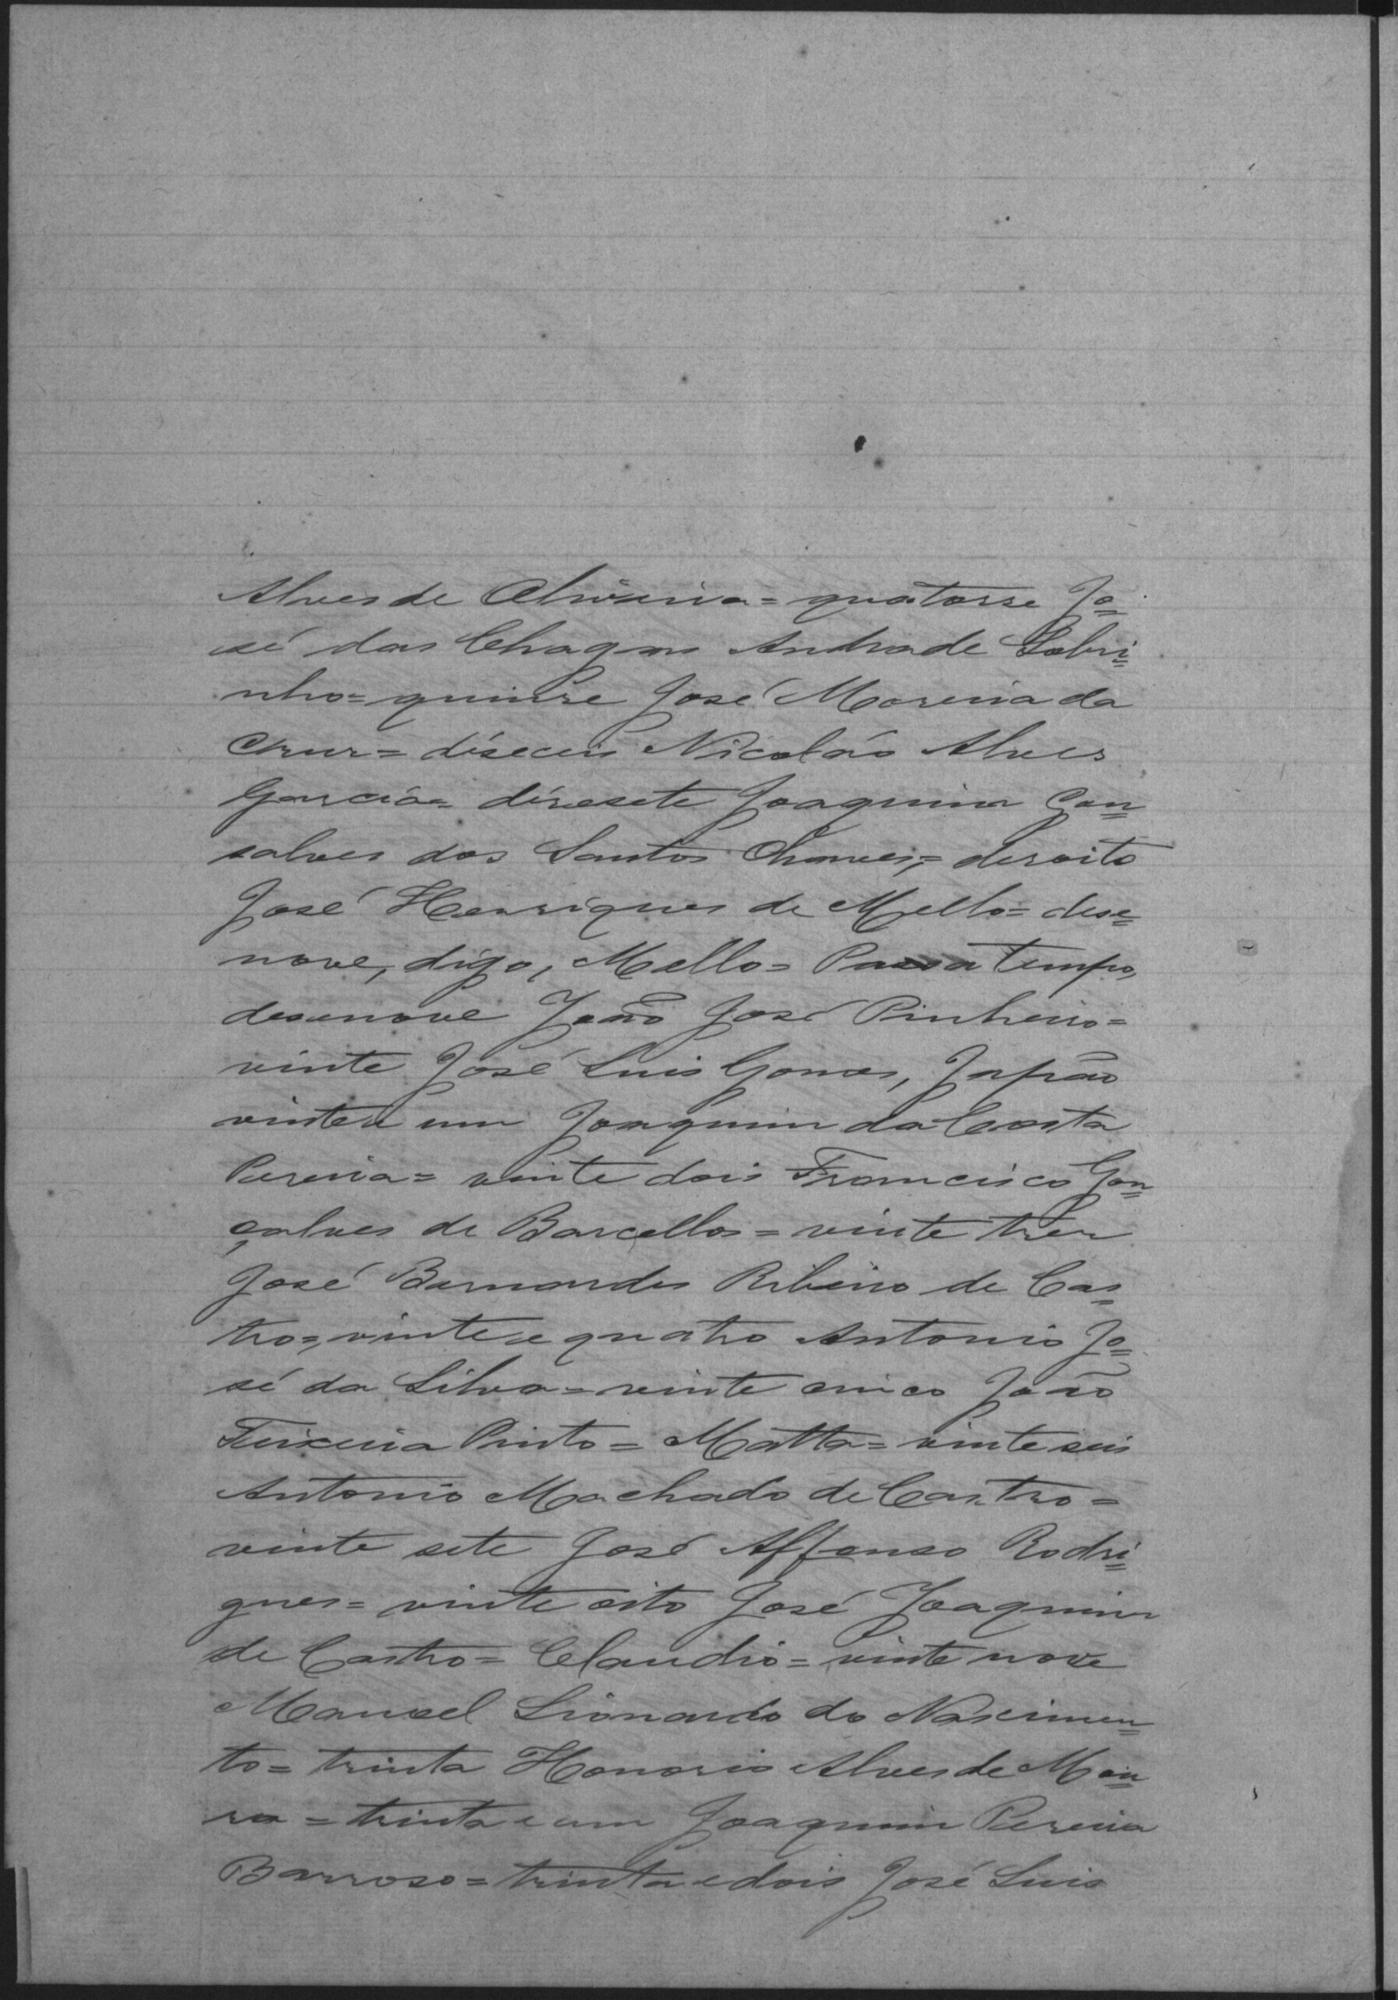 Alves de Oliveira = quatorse Jo=
sé das Chagas Andrade Sobri=
nho = quinse José Moreira da
Crur = déseceis Nicoláo Alves
Garcia = diresete Joaquim Gon=
salves dos Santos Chaves, = deroito
José Henriques de Mello = dese=
nove, digo, Mello = Passatempo,
desenove João José Pinheiro =
vinte José Luis Gomes, Japão
vinte e um Joaquim da Costa
Pereira = vinte dois Francisco Gon=
çalves de Barcellos = vinte tres
José Bernardes Ribeiro de Cas=
tro = vinte e quatro Antonio Jo=
sé da Silva = vinte cinco João
Teixeira Pinto = Matta = vinte seis
Antonio Machado de Castro =
vinte sete José Affonso Rodri=
gues = vinte oito José Joaquim
de Castro = Claudio = vinte nove
Manoel Lionardo do Nascimen=
to = trinta Honorio Alves de Mou=
ra = trinta e um Joaquim Pereira
Barroso = trinta e dois José Luis